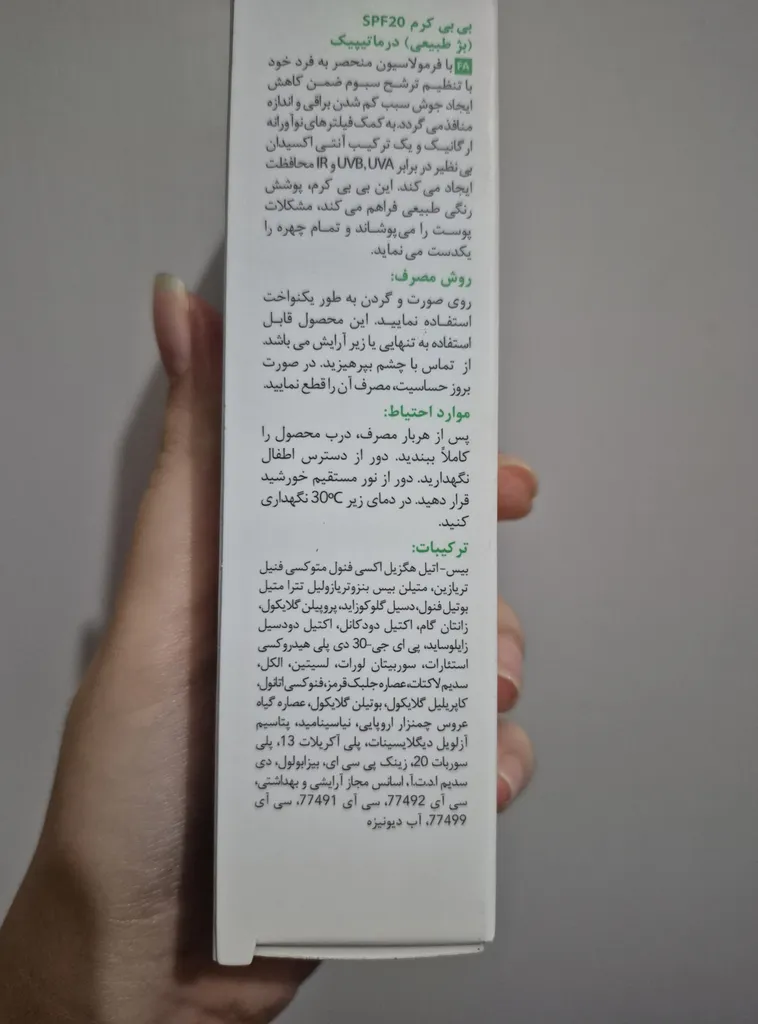 بی بی کرم SPF20
(بژ طبیعی) درماتیپیک
FA با فرمولاسیون منحصر به فرد خود
با تنظیم ترشح سبوم ضمن کاهش
ایجاد جوش سبب کم شدن براقی و اندازه
منافذمی گردد.به کمک فیلترهای نوآورانه
ارگانیک و یک ترکیب آنتی اکسیدان
بی نظیر در برابر UVB, UVA و IR محافظت
ایجاد می کند. این بی بی کرم، پوشش
رنگی طبیعی فراهم می کند، مشکلات
پوست را می‌پوشاند و تمام چهره را
یکدست می نماید.
روش مصرف:
روی صورت و گردن به طور یکنواخت
استفاده نمایید. این محصول قابل
استفاده به تنهایی یا زیر آرایش می باشد.
از تماس با چشم بپرهیزید. در صورت
بروز حساسیت، مصرف آن را قطع نمایید.
موارد احتیاط:
پس از هربار مصرف، درب محصول را
کاملاً ببندید. دور از دسترس اطفال
نگهدارید. دور از نور مستقیم خورشید
قرار دهید. در دمای زیر 30ºC نگهداری
کنید.
ترکیبات:
بیس-اتیل هگزیل اکسی فنول متوکسی فنیل
تریازین، متیلن بیس بنزوتریازولیل تترا متیل
بوتیل فنول، دسیل گلوکوزاید، پروپیلن گلایکول،
زانتان گام، اکتیل دودکانل، اکتیل دودسیل
زایلوساید، پی ای جی-30 دی پلی هیدروکسی
استئارات، سوربیتان لورات، لسیتین، الکل،
سدیم لاکتات، عصاره جلبک قرمز، فنوکسی اتانول،
کاپریلیل گلایکول، بوتیلن گلایکول، عصاره گیاه
عروس چمنزار اروپایی، نیاسینامید، پتاسیم
آزلویل دیگلایسینات، پلی آکریلات 13، پلی
سوربات 20، زینک پی سی ای، بیزابولول، دی
سدیم ا.د.ت.آ، اسانس مجاز آرایشی و بهداشتی،
سی آی 77492، سی آی 77491، سی آی
77499، آب دیونیزه